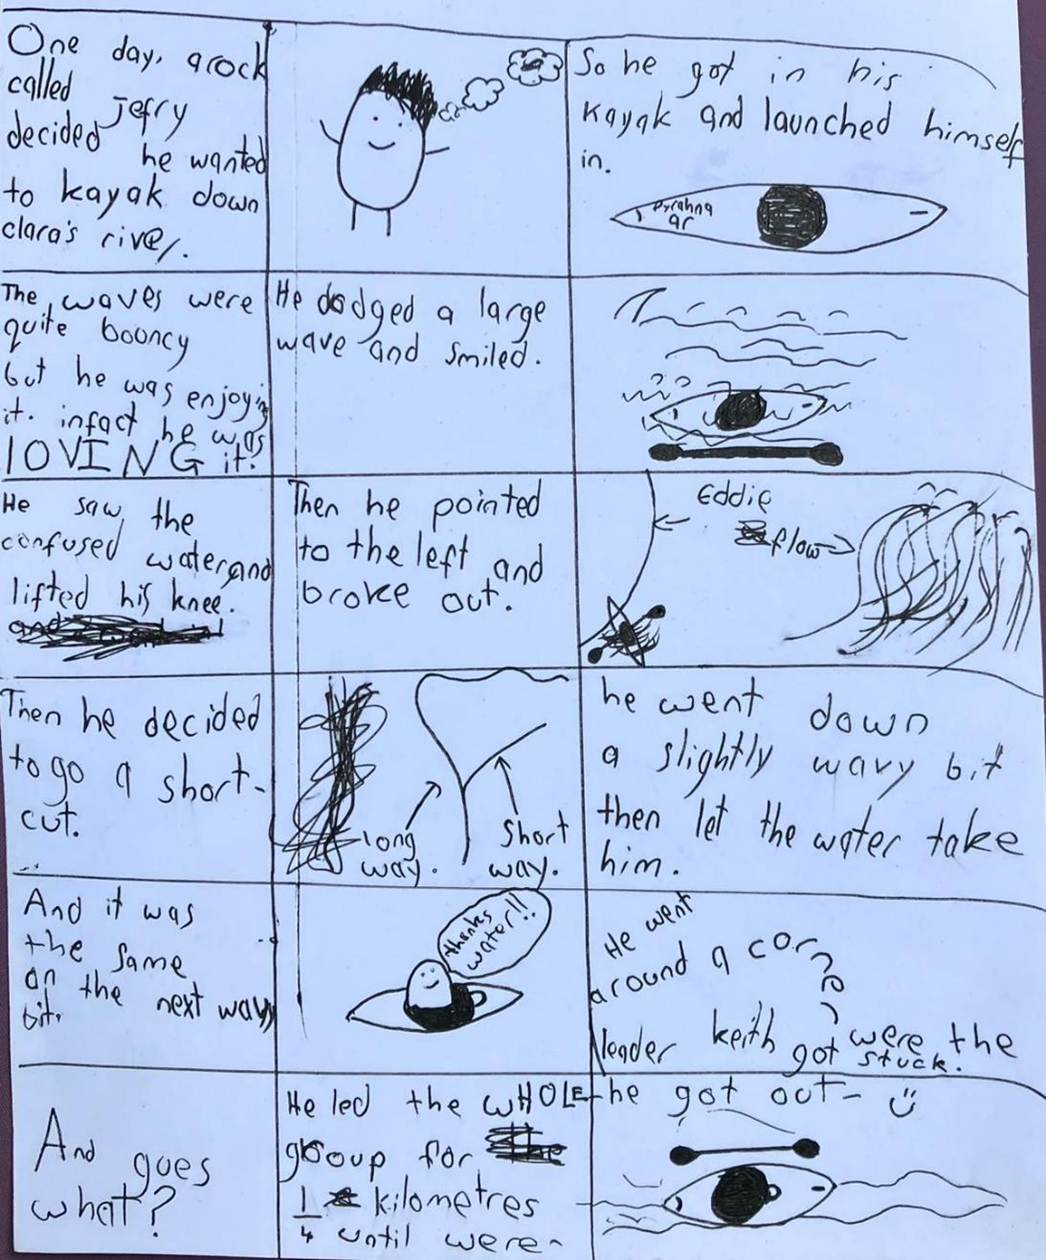 One day, a rock
called Jefry
decided he wanted
to kayak down
clara's river.
So he got in his
kayak and launched himself
in.
Pyrahna
ar
The waves were
quite booncy
but he was enjoying
it. infact he was
lOVING it!
He dodged a large
wave and smiled.
He saw the
confused water and
lifted his knee.
Then he pointed
to the left and
broke out.
Eddie
flow
Then he decided
to go a short-
cut.
long
way.
short
way.
he went down
a slightly wavy bit
then let the water take
him.
And it was
the same
on the next wavy
bit.
thanks
water!!
He went
around a corner, were the
leader keith got stuck.
And goes
what?
He led the WHOLE
group for
1/4 kilometres
until were-
he got out-